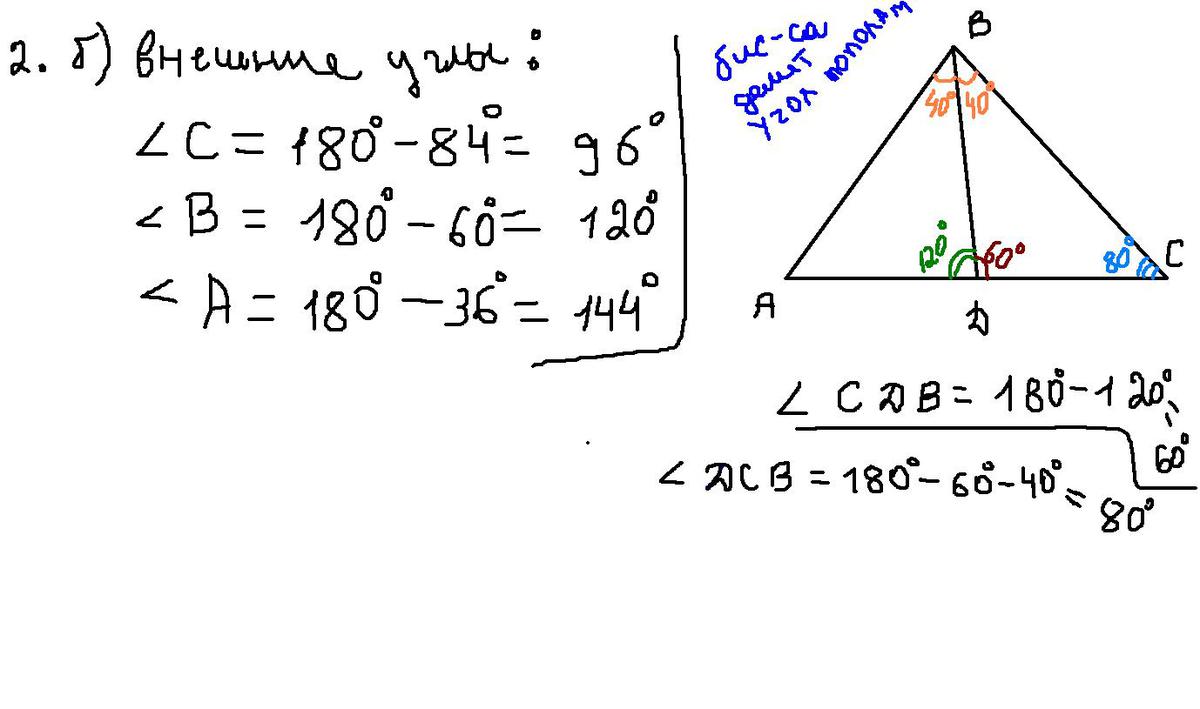 2. б) внешние углы:
∠C = 180° - 84° = 96°
∠B = 180° - 60° = 120°
∠A = 180° - 36° = 144°
бис-са
делит
угол пополам
B
40° 40°
120° 60° 80° C
A D
∠CDB = 180° - 120° =
60°
∠DCB = 180° - 60° - 40° =
80°